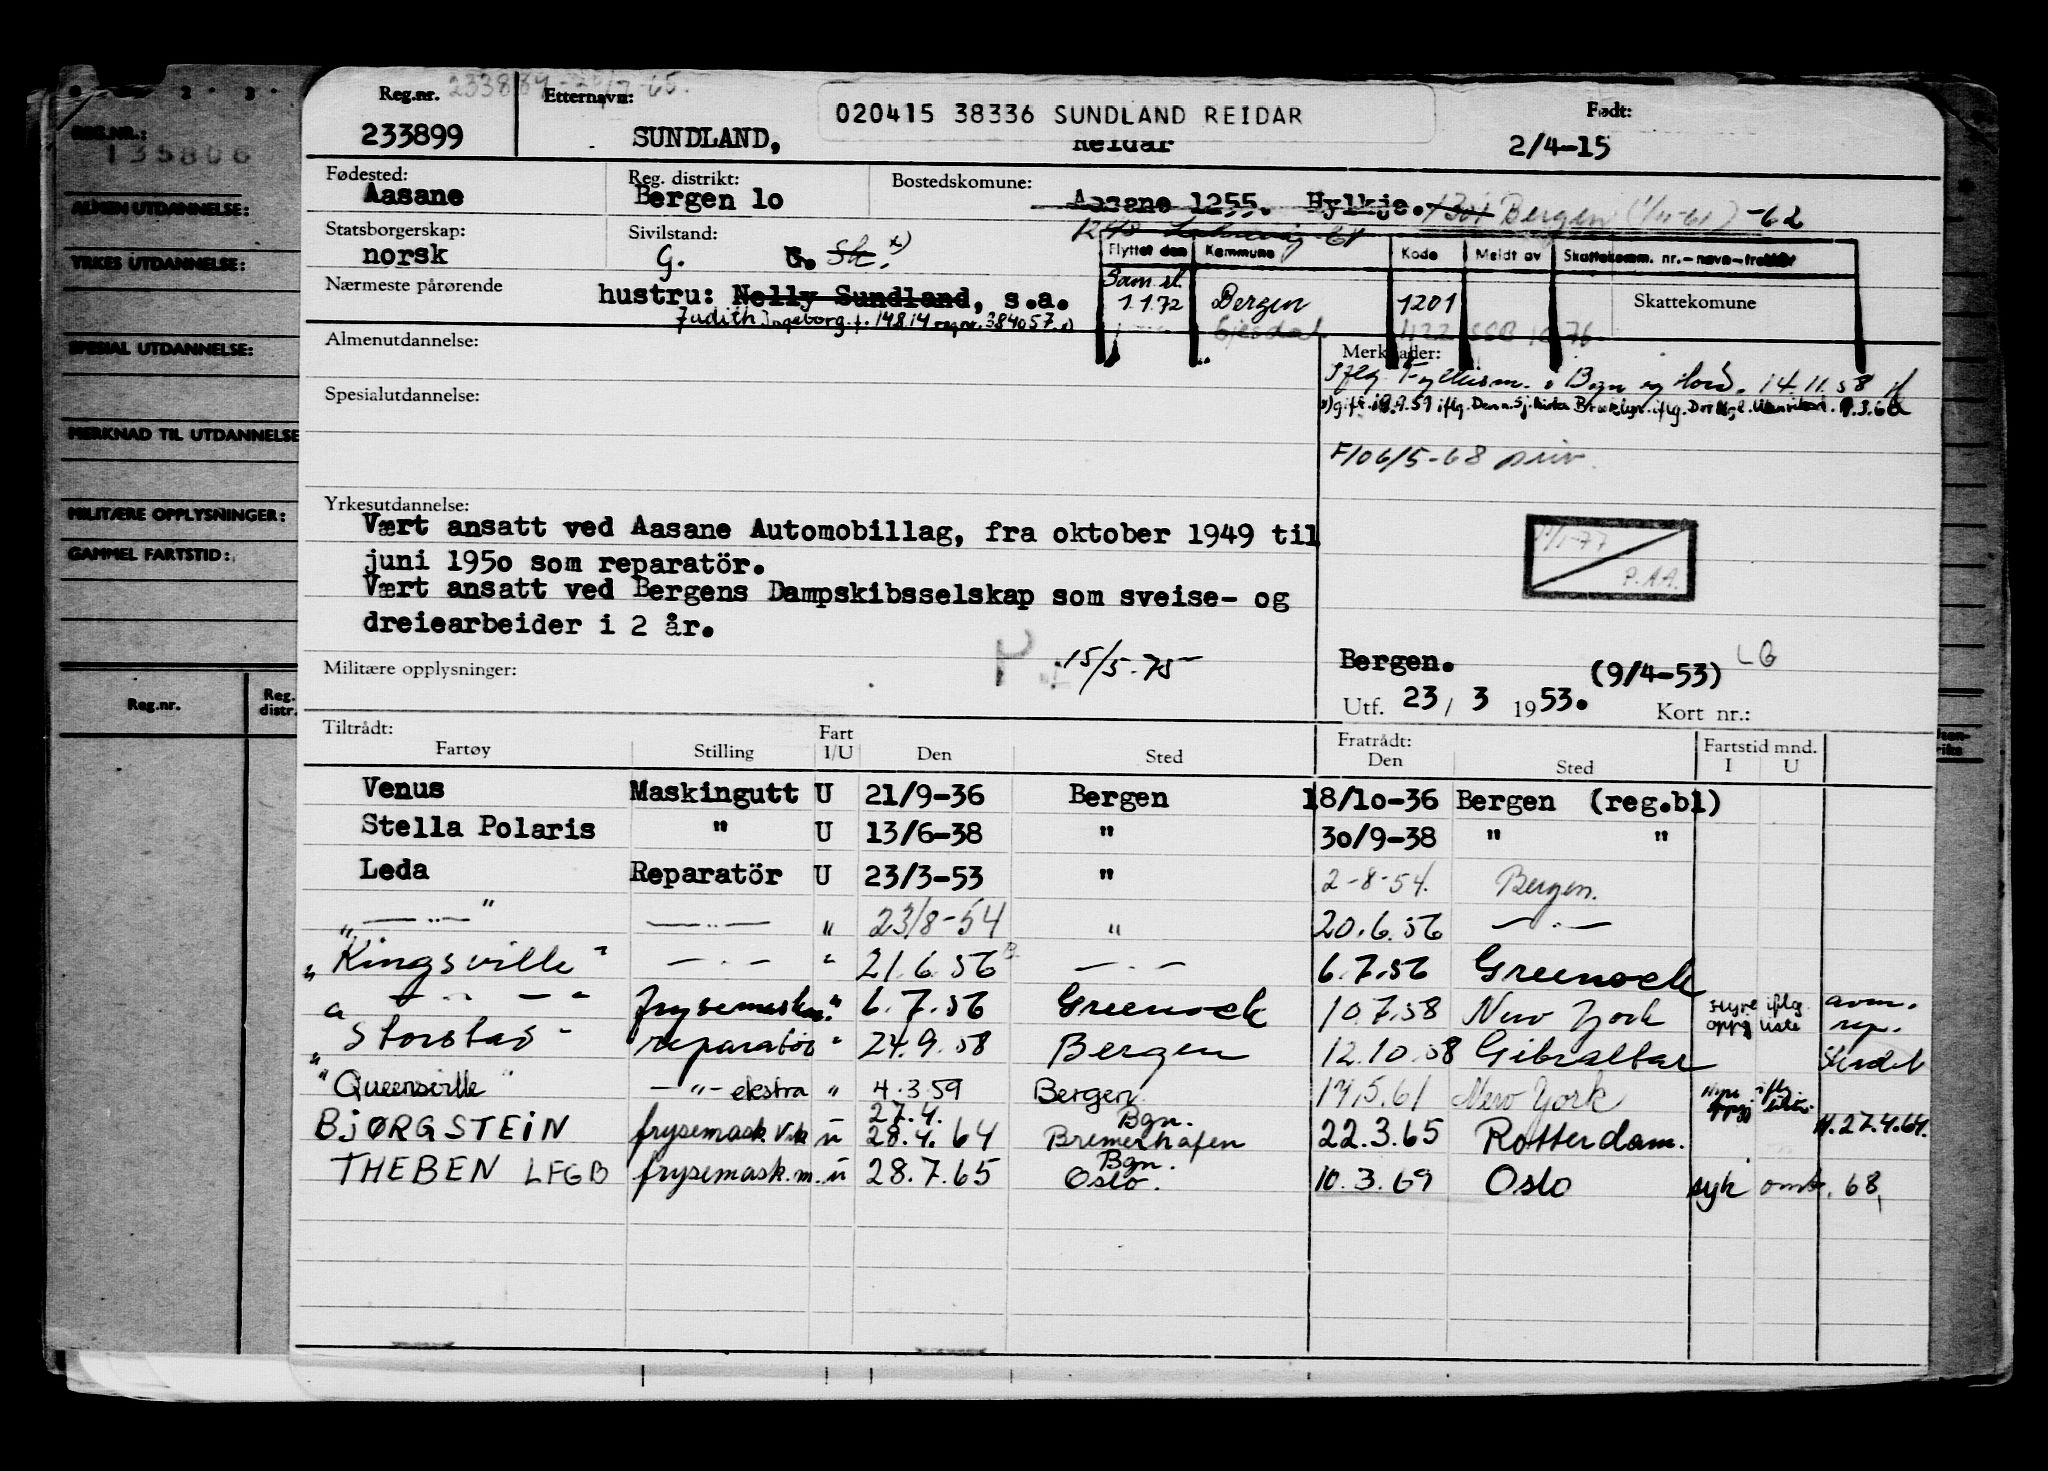 Reg.nr. Etternavn: Født:
020415 38336 SUNDLAND REIDAR
233899 SUNDLAND, Reidar 2/4-15
Fødested: Reg. distrikt: Bostedskomune:
Aasane Bergen 1o Aasane 1255. Hylkje. 1301 Bergen (1/11-61) -62
Statsborgerskap: Sivilstand:
norsk G. G. Sk. x)
Flyttet den Kommune Kode Meldt av Skattekomm. nr.-navn-trekker
Nærmeste pårørende hustru: Nelly Sundland, s.a.
Judith Ingeborg f. 14814 regnr. 384057.
Sam.sl.
1.1.72 Bergen 1201 Skattekomune
Almenutdannelse:
Merknader:
Iflg. 14.11.58
F106/5-68 priv.
Spesialutdannelse:
Yrkesutdannelse:
Vært ansatt ved Aasane Automobillag, fra oktober 1949 til
juni 195o som reparatör.
Vært ansatt ved Bergens Dampskibsselskap som sveise- og
dreiearbeider i 2 år.
P.A.A.
Militære opplysninger: 15/5-75
Bergen. (9/4-53) LG
Utf. 23 / 3 1953. Kort nr.:
Tiltrådt: Fratrådt: Fartstid mnd.
Fartøy Stilling Fart I/U Den Sted Den Sted I U
Venus Maskingutt U 21/9-36 Bergen 18/1o-36 Bergen (reg.bl)
Stella Polaris " U 13/6-38 " 3o/9-38 " "
Leda Reparatör U 23/3-53 " 2-8-54. Bergen.
" — .. — " — .. — " 23/8-54 " 20.6.56 — . —
"Kingsville" — . — " 21.6.56 — . — 6.7.56 Greenock
— .. — " frysemaskm. " 6.7.56 Greenock 10.7.58 New York Hyre iflg. oppg. liste avm. rep.
"Storstad" reparatör " 24.9.58 Bergen 12.10.58 Gibraltar
"Queensville" — " — ekstra " 4.3.59 Bergen 17.5.61 New York
BJØRGSTEIN frysemask. u 27.4. 28.4.64 Bgn. Bremerhafen 22.3.65 Rotterdam. 27.4.64.
THEBEN LFGB frysemask.m. u 28.7.65 Bgn. Oslo. 10.3.69 Oslo syk omb. 68,
REG.NR.:
135806
ALMEN UTDANNELSE:
YRKES UTDANNELSE:
SPESIAL UTDANNELSE:
MERKNAD TIL UTDANNELSE
MILITÆRE OPPLYSNINGER:
GAMMEL FARTSTID:
Reg.nr. Reg. distr.